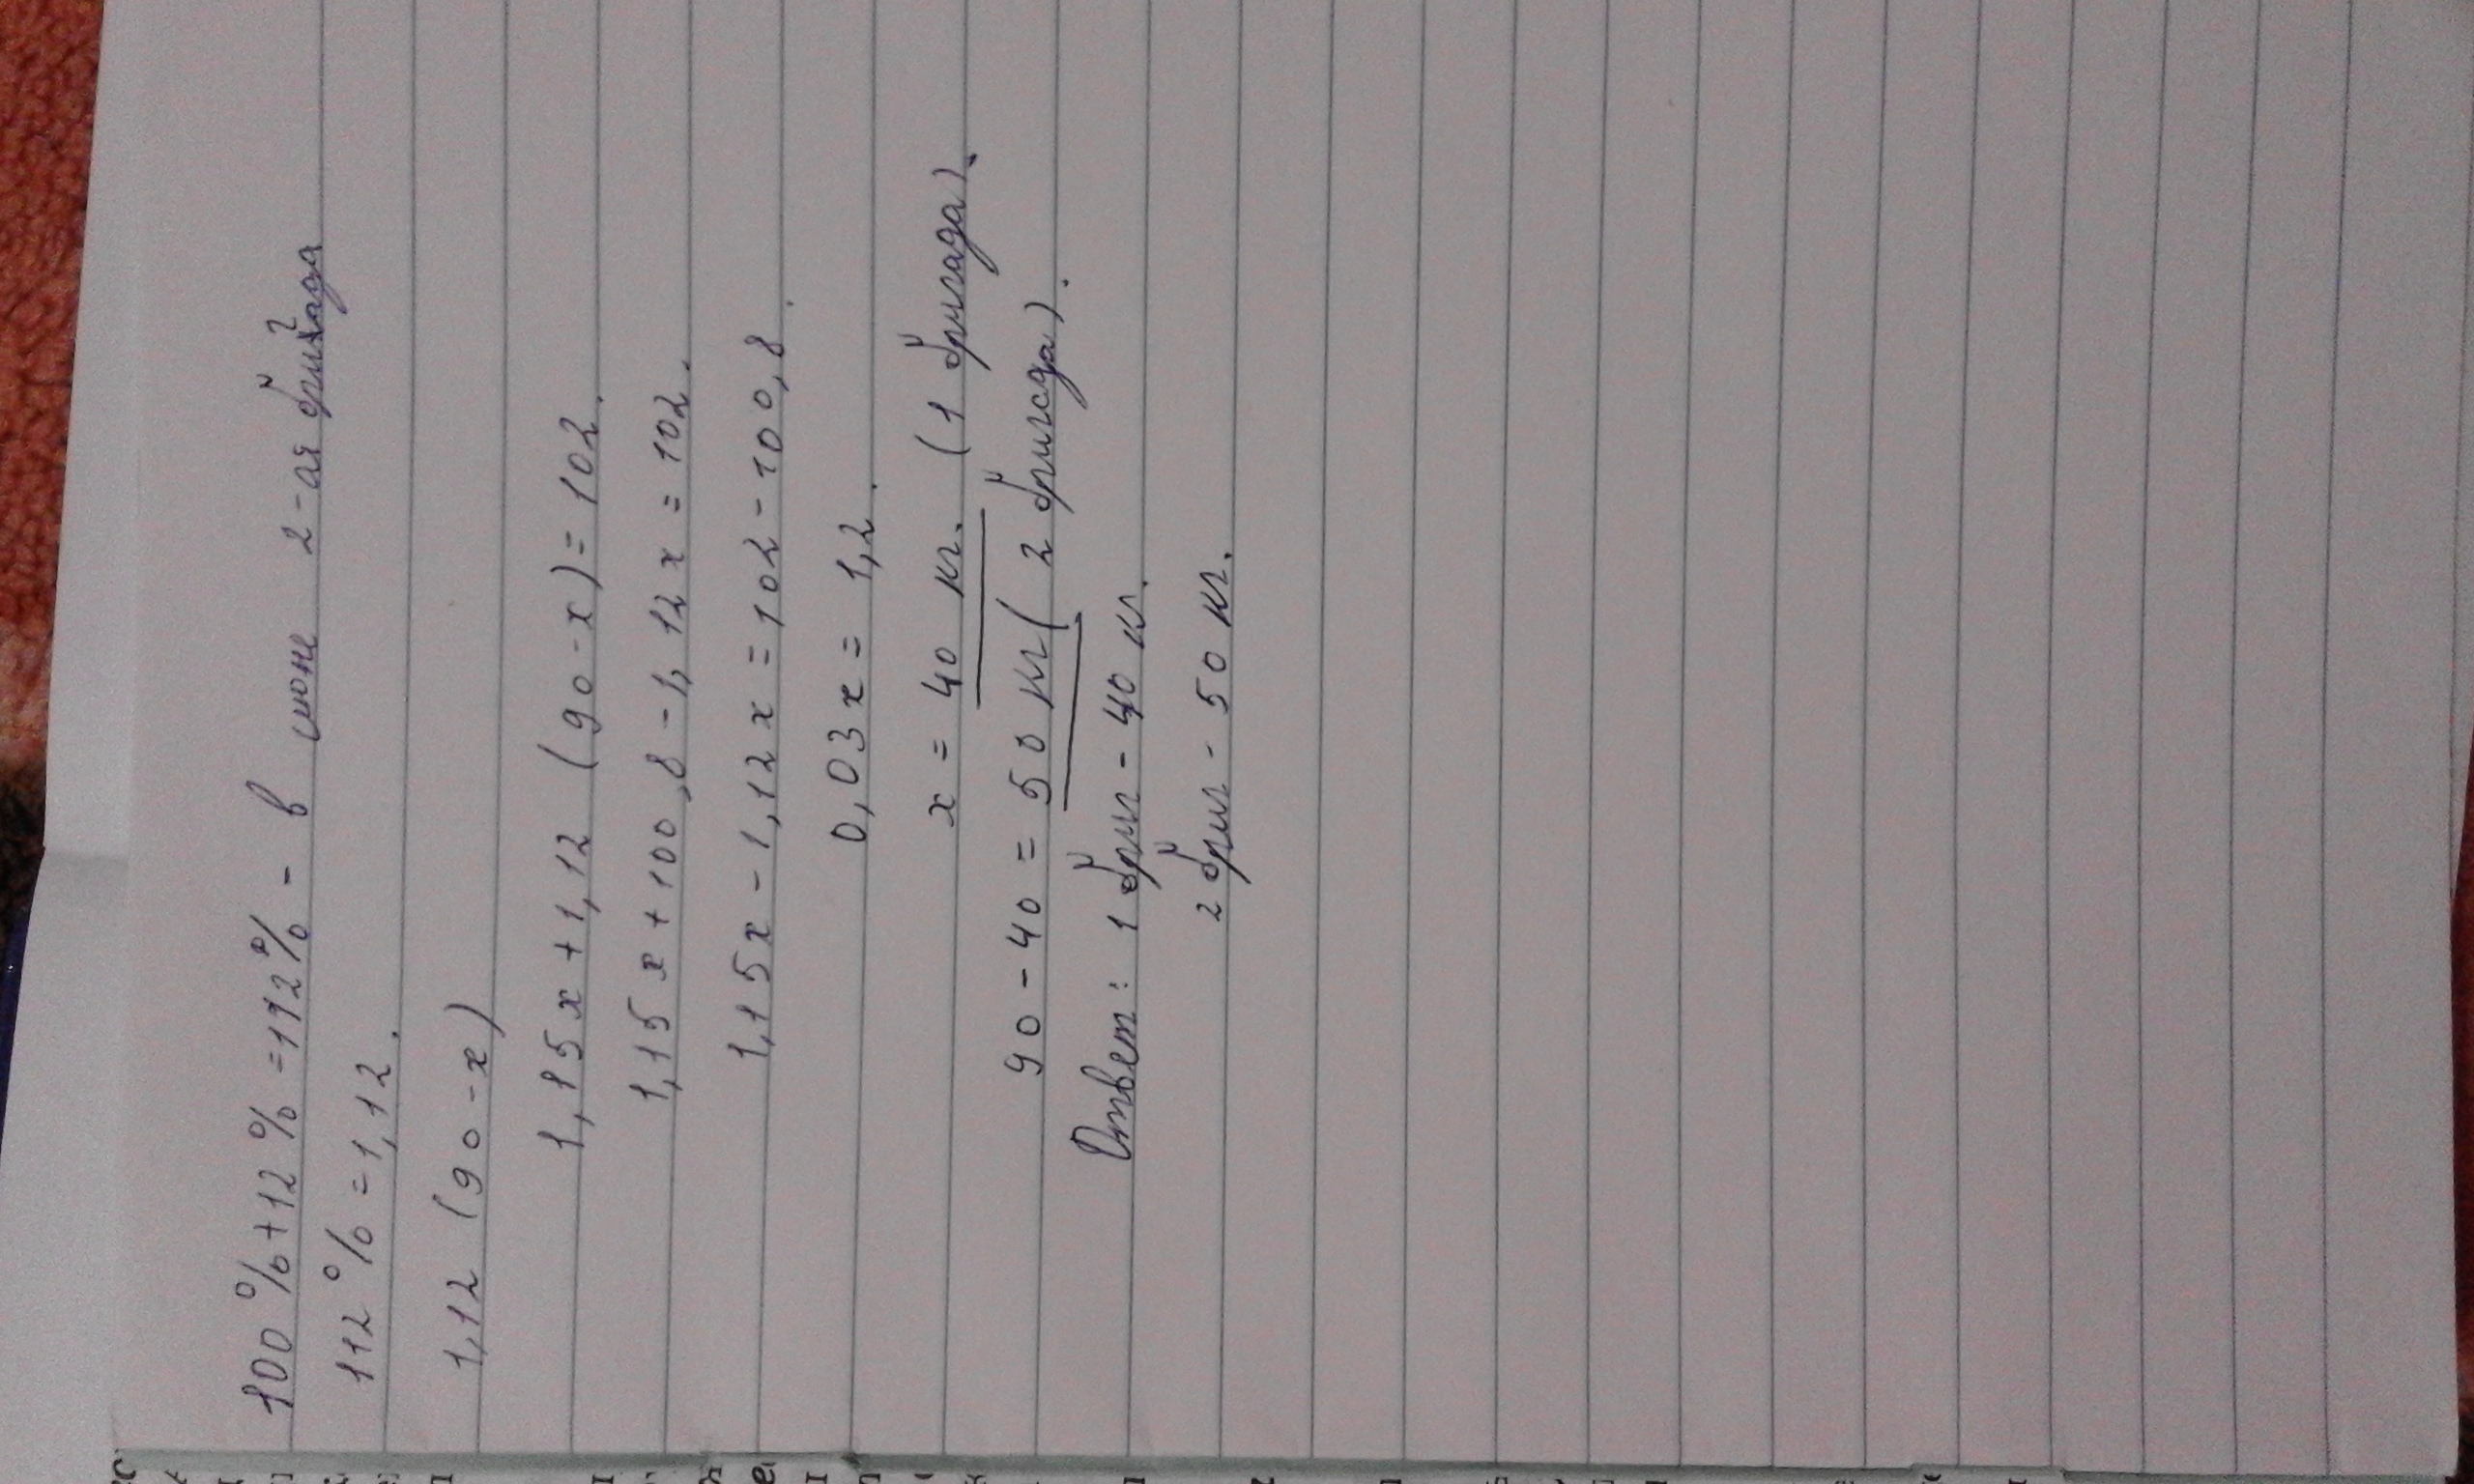 100%+12%=112% - в июне 2-ая бригада
112%=1,12.
1,12 (90-x)
1,15x+1,12 (90-x)=102.
1,15x+100,8-1,12x=102.
1,15x-1,12x=102-100,8.
0,03x=1,2.
x=40 кг. (1 бригада).
90-40=50 кг (2 бригада).
Ответ: 1 бриг-40 кг.
2 бриг-50 кг.